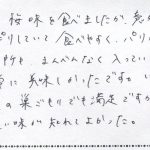 桜味を食べましたが、意
パリしていて食べやすく、パリ
所も、まんべんなく入ってい
常に美味しかったです。い
の巣ごもりでも満足ですが
い味が知れてよかった。